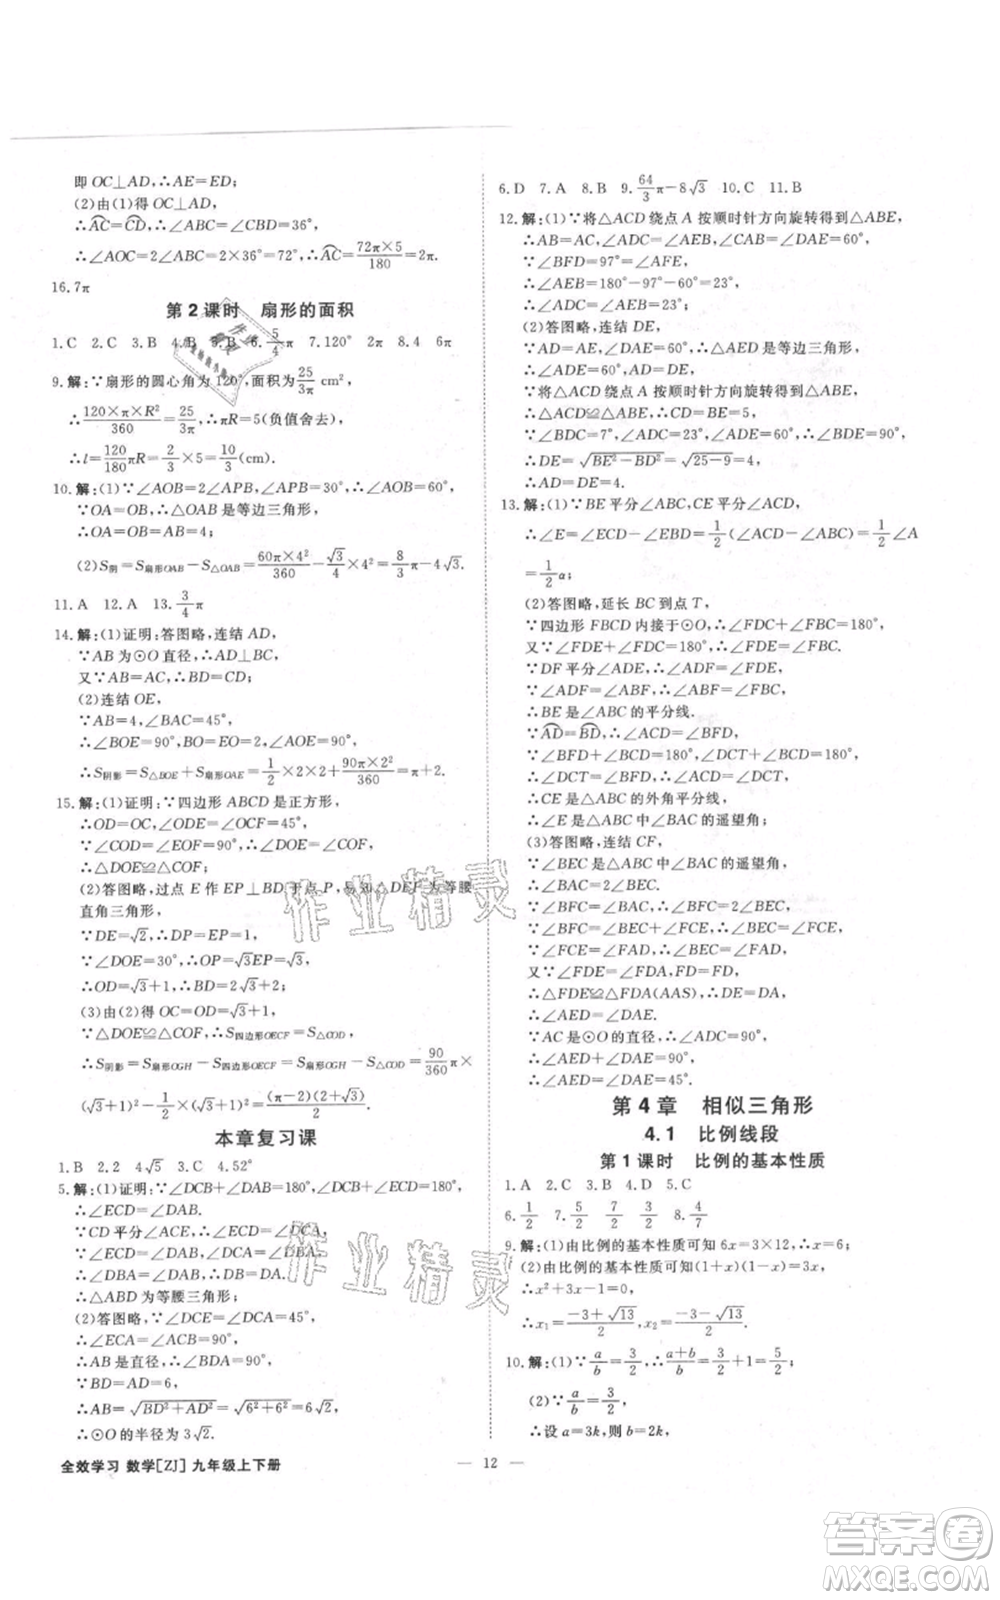 即 OC⊥AD,∴AE=ED;
(2)由(1)得 OC⊥AD,
∴AC=CD,∴∠ABC=∠CBD=36°,
∴∠AOC=2∠ABC=2×36°=72°,∴AC=72π×5/180=2π.
16.7π
第 2 课时 扇形的面积
1.C 2.C 3.B 4.B 5.B 6.5/4π 7.120° 2π 8.4 6π
9.解:∵扇形的圆心角为 120°,面积为25/3π cm²,
∴120×π×R²/360=25/3π,∴πR=5(负值舍去),
∴l=120/180πR=2/3×5=10/3(cm).
10.解:(1)∵∠AOB=2∠APB,∠APB=30°,∴∠AOB=60°,
∵OA=OB,∴△OAB 是等边三角形,
∴OA=OB=AB=4;
(2)S阴=S扇形OAB-S△OAB=60π×4²/360-√3/4×4²=8/3π-4√3.
11.A 12.A 13.3/4π
14.解:(1)证明:答图略,连结 AD,
∵AB 为⊙O 直径,∴AD⊥BC,
又∵AB=AC,∴BD=CD;
(2)连结 OE,
∵AB=4,∠BAC=45°,
∴∠BOE=90°,BO=EO=2,∠AOE=90°,
∴S阴影=S△BOE+S扇形OAE=1/2×2×2+90π×2²/360=π+2.
15.解:(1)证明:∵四边形 ABCD 是正方形,
∴OD=OC,∠ODE=∠OCF=45°,
∵∠COD=∠EOF=90°,∴∠DOE=∠COF,
∴△DOE≌△COF;
(2)答图略,过点 E 作 EP⊥BD 于点 P,易知△DEP 为等腰
直角三角形,
∵DE=√2,∴DP=EP=1,
∵∠DOE=30°,∴OP=√3EP=√3,
∴OD=√3+1,∴OC=OD=√3+1;
(3)由(2)得 OC=OD=√3+1,
∵△DOE≌△COF,∴S四边形OECF=S△COD,
∴S阴影=S扇形OGH-S四边形OECF=S扇形OGH-S△COD=90/360π×
(√3+1)²-1/2×(√3+1)²=(π-2)(2+√3)/2.
本章复习课
1.B 2.2 4√5 3.C 4.52°
5.解:(1)证明:∵∠DCB+∠DAB=180°,∠DCB+∠ECD=180°,
∴∠ECD=∠DAB.
∵CD 平分∠ACE,∴∠ECD=∠DCA,
∴∠DBA=∠DAB,∵∠DCA=∠DBA,
∴△ABD 为等腰三角形;
(2)答图略,∵∠DCE=∠DCA=45°,
∴∠ECA=∠ACB=90°,
∴AB 是直径,∴∠BDA=90°,
∵BD=AD=6,
∴AB=√BD²+AD²=√6²+6²=6√2,
∴⊙O 的半径为 3√2.
6.D 7.A 8.B 9.64/3π-8√3 10.C 11.B
12.解:(1)∵将△ACD 绕点 A 按顺时针方向旋转得到△ABE,
∴AB=AC,∠ACD=∠AEB,∠CAB=∠DAE=60°,
∵∠BFD=97°=∠AFE,
∴∠AEB=180°-97°-60°=23°,
∴∠ADC=∠AEB=23°;
(2)答图略,连结 DE,
∵AD=AE,∠DAE=60°,∴△AED 是等边三角形,
∴∠ADE=60°,AD=DE,
∵将△ACD 绕点 A 按顺时针方向旋转得到△ABE,
∴△ACD≌△ABE,∴CD=BE=5,
∵∠BDC=7°,∠ADC=23°,∠ADE=60°,∴∠BDE=90°,
∴DE=√BE²-BD²=√25-9=4,
∴AD=DE=4.
13.解:(1)∵BE 平分∠ABC,CE 平分∠ACD,
∴∠E=∠ECD-∠EBD=1/2(∠ACD-∠ABC)=1/2∠A
=1/2α;
(2)答图略,延长 BC 到点 T,
∵四边形 FBCD 内接于⊙O,∴∠FDC+∠FBC=180°,
又∵∠FDE+∠FDC=180°,∴∠FDE=∠FBC,
∵DF 平分∠ADE,∴∠ADF=∠FDE,
∵∠ADF=∠ABF,∴∠ABF=∠FBC,
∴BE 是∠ABC 的平分线.
∵AD=BD,∴∠ACD=∠BFD,
∵∠BFD+∠BCD=180°,∠DCT+∠BCD=180°,
∴∠DCT=∠BFD,∴∠ACD=∠DCT,
∴CE 是△ABC 的外角平分线,
∴∠E 是△ABC 中∠BAC 的遥望角;
(3)答图略,连结 CF,
∵∠BEC 是△ABC 中∠BAC 的遥望角,
∴∠BAC=2∠BEC,
∵∠BFC=∠BAC,∴∠BFC=2∠BEC,
∵∠BFC=∠BEC+∠FCE,∴∠BEC=∠FCE,
∵∠FCE=∠FAD,∴∠BEC=∠FAD,
又∵∠FDE=∠FDA,FD=FD,
∴△FDE≌△FDA(AAS),∴DE=DA,
∴∠AED=∠DAE.
∵AC 是⊙O 的直径,∴∠ADC=90°,
∴∠AED+∠DAE=90°,
∴∠AED=∠DAE=45°.
第 4 章 相似三角形
4.1 比例线段
第 1 课时 比例的基本性质
1.A 2.C 3.B 4.D 5.C
6.1/2 7.5/2 1/2 3/2 8.4/7
9.解:(1)由比例的基本性质可知 6x=3×12,∴x=6;
(2)由比例的基本性质可知(1+x)(1-x)=3x,
∴x²+3x-1=0,
∴x₁=-3+√13/2,x₂=-3-√13/2.
10.解:(1)∵a/b=3/2,∴a+b/b=3/2+1=5/2;
(2)∵a/b=3/2,
∴设 a=3k,则 b=2k,
全效学习 数学[ZJ] 九年级上下册
12
作业精灵
作业精灵
答案卷
MXQE.COM